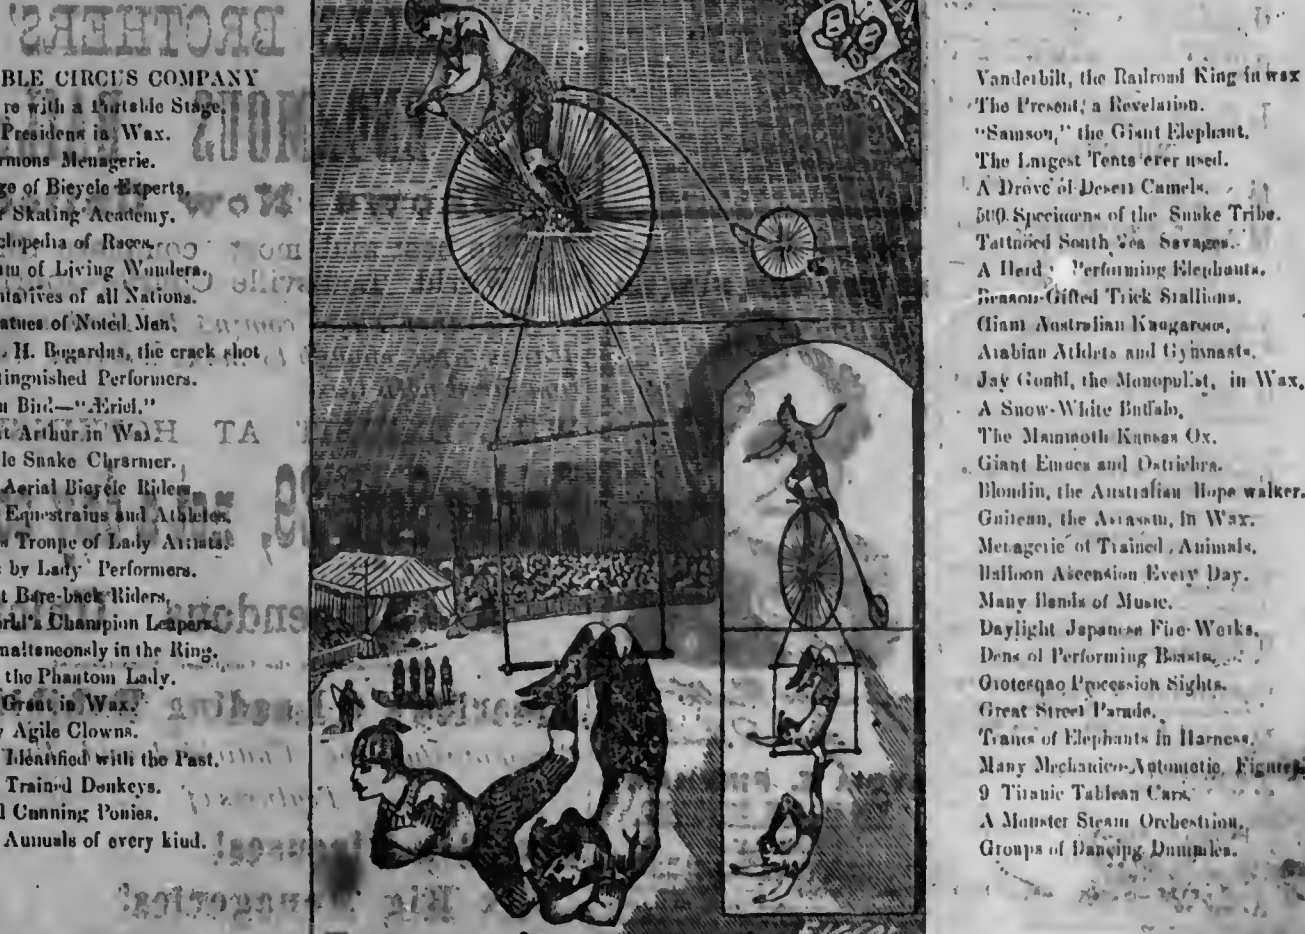 BROTHERS'
BLE CIRCUS COMPANY
re with a Portable Stage,
Presidens in Wax.
ormons Menagerie.
ge of Bicycle Experts,
r Skating Academy.
clopedia of Races,
um of Living Wonders.
ntatives of all Nations.
atues of Noted Men,
. H. Bogardus, the crack shot
tinguished Performers.
n Bird—"Æriel."
t Arthur in Wax
le Snake Chrarmer.
Aerial Bicycle Riders
Equestraius and Athletes,
s Tronpe of Lady Artists.
s by Lady Performers.
t Bare-back Riders,
orld's Champion Leapers
multaneously in the Ring.
the Phantom Lady.
Grant in Wax.
y Agile Clowns.
Identified with the Past.
Trained Donkeys.
d Cunning Ponies.
Animals of every kind.
Vanderbilt, the Railroad King in wax
The Present, a Revelation.
"Samson," the Giant Elephant.
The Largest Tents ever used.
A Drove of Desert Camels.
500 Specimens of the Snake Tribe.
Tattooed South Sea Savages.
A Herd Performing Elephants.
Reason-Gifted Trick Stallions,
Giant Australian Kangaroos,
Arabian Athlets and Gymnasts.
Jay Gould, the Monopolist, in Wax,
A Snow-White Buffalo,
The Mammoth Kansas Ox.
Giant Emues and Ostriches.
Blondin, the Australian Rope walker.
Guiteau, the Assassin, in Wax.
Menagerie of Trained Animals.
Balloon Ascension Every Day.
Many Bands of Music.
Daylight Japanese Fire-Works.
Dens of Performing Beasts,
Grotesque Procession Sights.
Great Street Parade.
Trains of Elephants in Harness.
Many Mechanico-Automotic, Figures
9 Titanic Tableau Cars,
A Monster Steam Orchestrion.
Groups of Dancing Dummies.